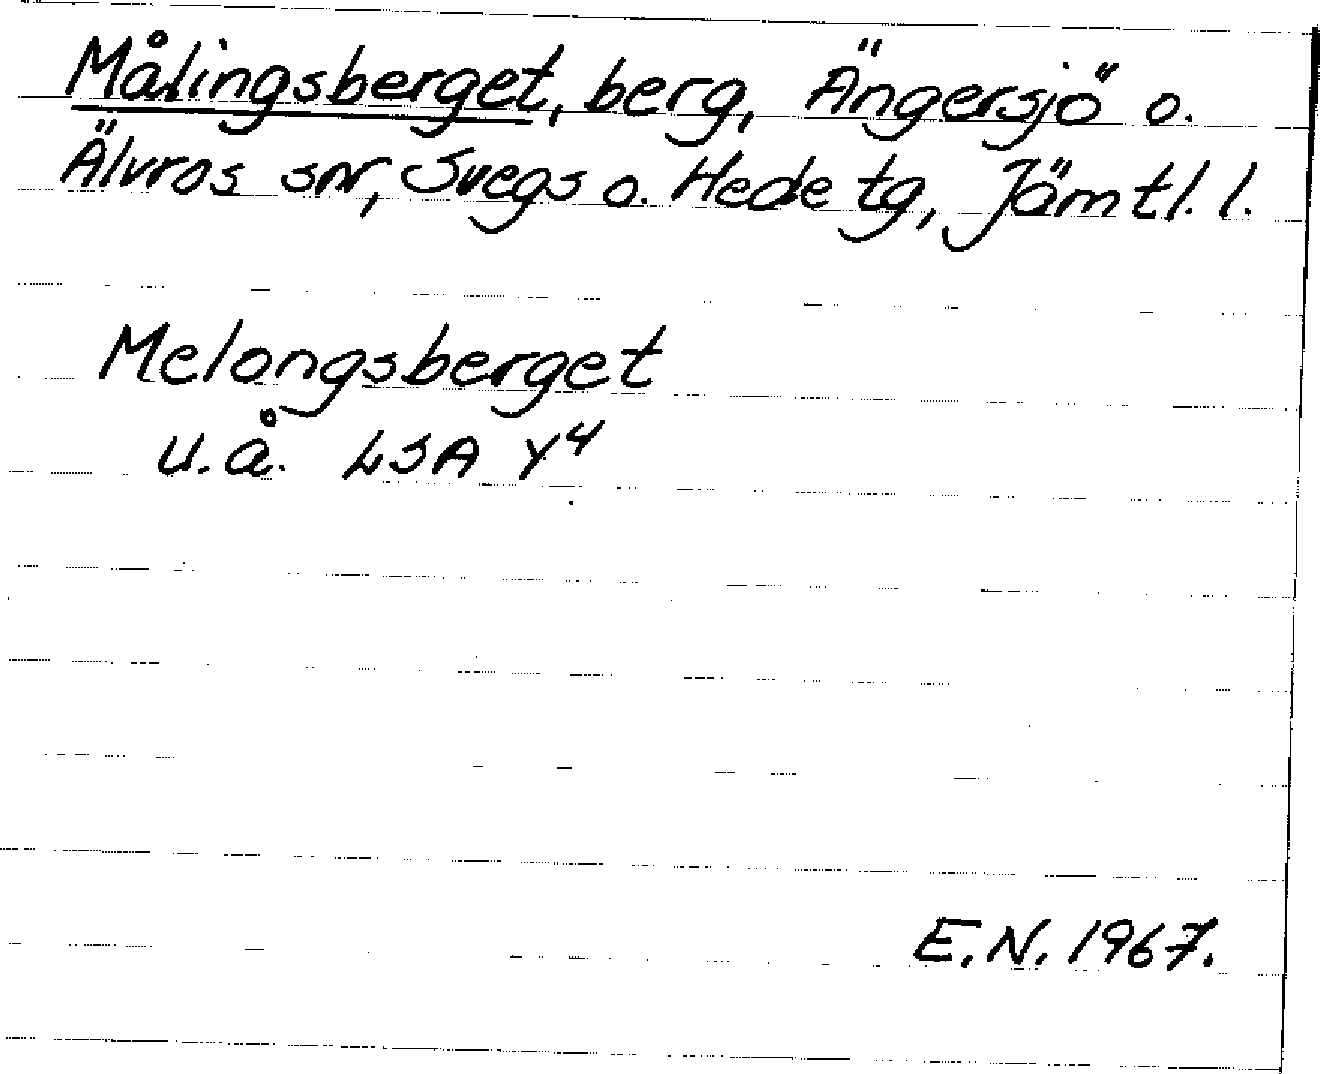 Målingsberget, berg, Ängersjö o.
Älvros snr, Svegs o. Hede tg, Jämtl. l.
Melongsberget
u.å. LSA Y4
E.N. 1967.